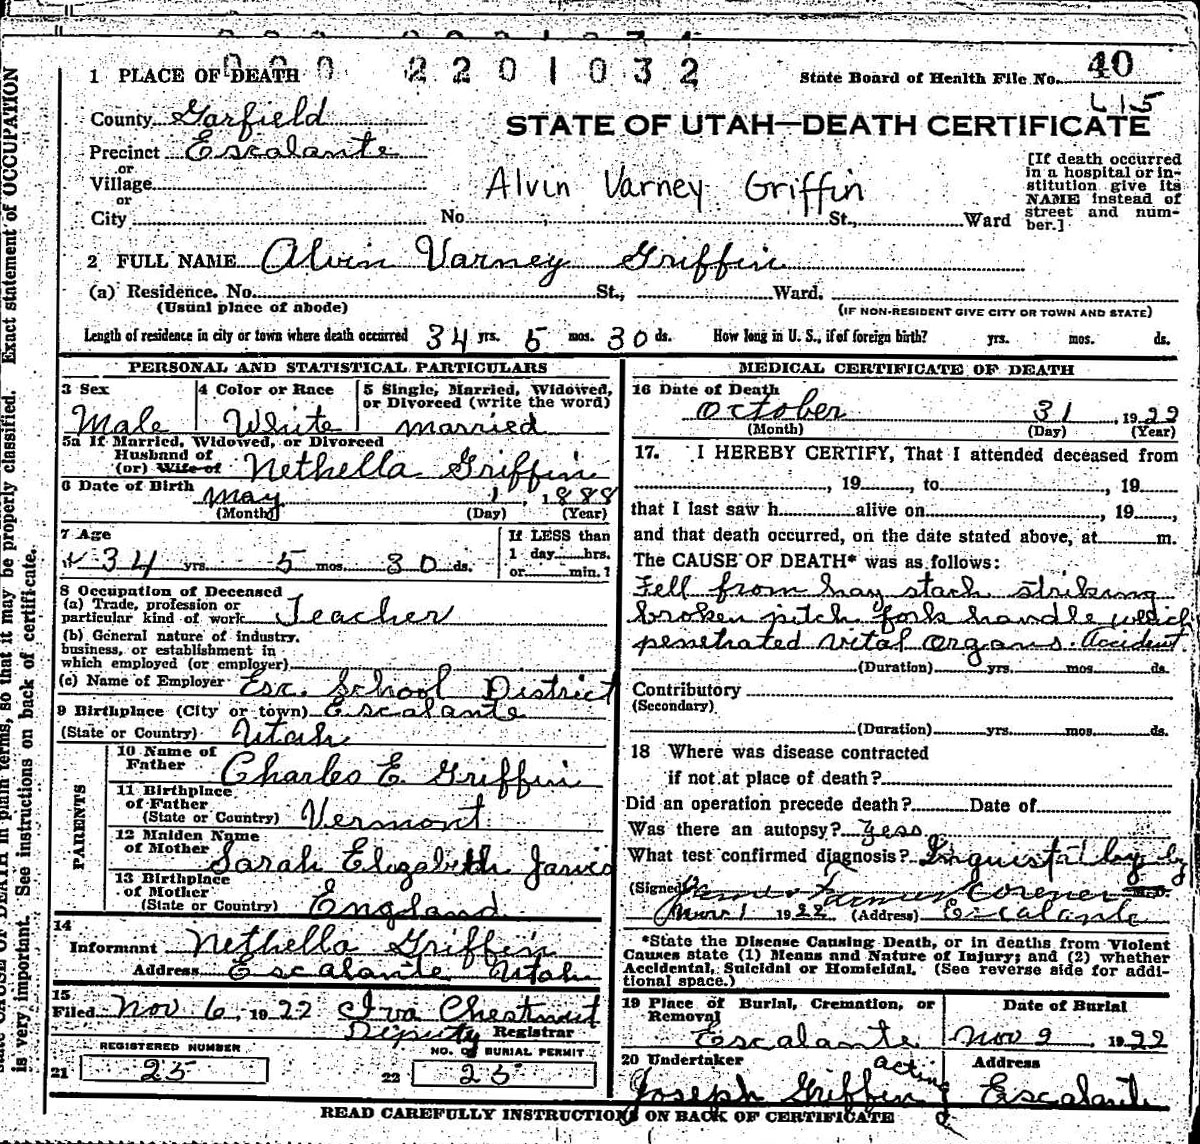 2201032
1 PLACE OF DEATH
State Board of Health File No. 40
L15
County Garfield
STATE OF UTAH—DEATH CERTIFICATE
Precinct Escalante
or
Village
or
City No. St., Ward
Alvin Varney Griffin
[If death occurred
in a hospital or in-
stitution give its
NAME instead of
street and num-
ber.]
2 FULL NAME Alvin Varney Griffin
(a) Residence. No. St., Ward.
(Usual place of abode)
(IF NON-RESIDENT GIVE CITY OR TOWN AND STATE)
Length of residence in city or town where death occurred 34 yrs. 5 mos. 30 ds. How long in U. S., if of foreign birth? yrs. mos. ds.
PERSONAL AND STATISTICAL PARTICULARS
3 Sex Male
4 Color or Race White
5 Single, Married, Widowed,
or Divorced (write the word)
married
5a If Married, Widowed, or Divorced
Husband of
(or) Wife of Nethella Griffin
6 Date of Birth May 1, 1888
(Month) (Day) (Year)
7 Age
34 yrs. 5 mos. 30 ds.
If LESS than
1 day hrs.
or min.?
8 Occupation of Deceased
(a) Trade, profession or
particular kind of work Teacher
(b) General nature of industry,
business, or establishment in
which employed (or employer)
(c) Name of Employer Esc. School District
9 Birthplace (City or town) Escalante
(State or Country) Utah
PARENTS
10 Name of
Father Charles E. Griffin
11 Birthplace
of Father
(State or Country) Vermont
12 Maiden Name
of Mother Sarah Elizabeth Jarvis
13 Birthplace
of Mother
(State or Country) England
14
Informant Nethella Griffin
Address Escalante Utah
15
Filed Nov 6, 1922 Iva Chestnut
Deputy Registrar
REGISTERED NUMBER
21 25
NO. OF BURIAL PERMIT
22 25
MEDICAL CERTIFICATE OF DEATH
16 Date of Death
October 31, 1922
(Month) (Day) (Year)
17. I HEREBY CERTIFY, That I attended deceased from
, 19 , to , 19
that I last saw h alive on , 19 ,
and that death occurred, on the date stated above, at m.
The CAUSE OF DEATH* was as follows:
Fell from hay stack striking
broken pitch fork handle which
penetrated vital organs. Accident.
(Duration) yrs. mos. ds.
Contributory
(Secondary)
(Duration) yrs. mos. ds.
18 Where was disease contracted
if not at place of death?
Did an operation precede death? Date of
Was there an autopsy? Yess
What test confirmed diagnosis? Inquest by
(Signed) Coroner M.D.
Nov 1 1922 (Address) Escalante
*State the Disease Causing Death, or in deaths from Violent
Causes state (1) Means and Nature of Injury; and (2) whether
Accidental, Suicidal or Homicidal. (See reverse side for addi-
tional space.)
19 Place of Burial, Cremation, or
Removal
Escalante
Date of Burial
Nov 2, 1922
20 Undertaker acting
Joseph Griffin
Address
Escalante
READ CAREFULLY INSTRUCTIONS ON BACK OF CERTIFICATE
CAUSE OF DEATH in plain terms, so that it may be properly classified. Exact statement of OCCUPATION
is very important. See instructions on back of certificate.